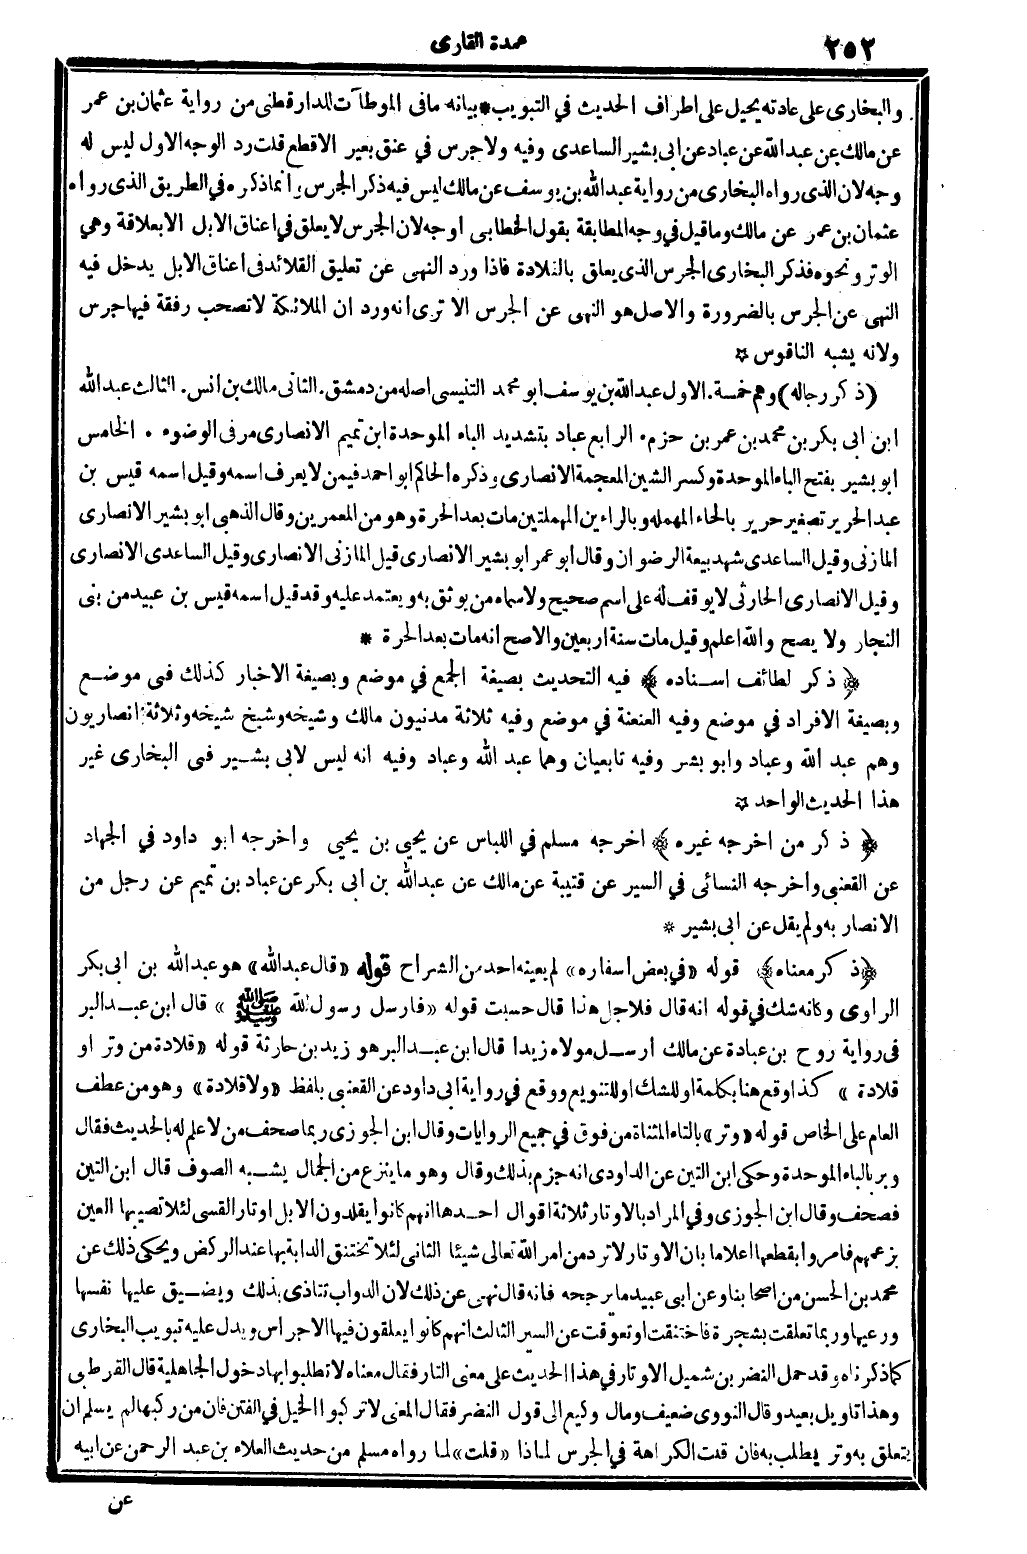 ٢٥٢
عمدة القارى
والبخارى على عادته يحيل على اطراف الحديث في التبويب * بيانه مافى الموطآت للدارقطنى من رواية عثمان بن عمر
عن مالك عن عبدالله عن عباد عن ابى بشير الساعدى وفيه ولا جرس في عنق بعير الا قطع قلت رد الوجه الاول ليس له
وجه لان الذى رواه البخارى من رواية عبدالله بن يوسف عن مالك ليس فيه ذكر الجرس وانما ذكره في الطريق الذى رواه
عثمان بن عمر عن مالك وما قيل في وجه المطابقة بقول الخطابى أوجه لان الجرس لا يعلق في اعناق الابل الا بعلاقة وهي
الوتر ونحوه فذكر البخارى الجرس الذى يعلق بالقلادة فاذا ورد النهى عن تعليق القلائد فى اعناق الابل يدخل فيه
النهى عن الجرس بالضرورة والاصل هو النهى عن الجرس الا ترى انه ورد ان الملائكة لا تصحب رفقة فيها جرس
ولانه يشبه الناقوس *
(ذكر رجاله) وهم خمسة . الاول عبدالله بن يوسف ابو محمد التنيسى اصله من دمشق . الثانى مالك بن انس . الثالث عبدالله
ابن ابى بكر بن محمد بن عمر بن حزم . الرابع عباد بتشديد الباء الموحدة ابن تميم الانصارى مر فى الوضوء . الخامس
ابو بشير بفتح الباء الموحدة وكسر الشين المعجمة الانصارى وذكره الحاكم ابو احمد فيمن لا يعرف اسمه وقيل اسمه قيس بن
عبد الحرير تصغير حرير بالحاء المهملة وبالراءين المهملتين مات بعد الحرة وهو من المعمرين وقال الذهبى ابو بشير الانصارى
المازنى وقيل الساعدى شهد بيعة الرضوان وقال ابو عمر ابو بشير الانصارى قيل المازنى الانصارى وقيل الساعدى الانصارى
وقيل الانصارى الحارثى لا يوقف له على اسم صحيح ولا سماه من يوثق به ويعتمد عليه وقد قيل اسمه قيس بن عبيد من بنى
النجار ولا يصح والله اعلم وقيل مات سنة اربعين والاصح انه مات بعد الحرة *
﴿ ذكر لطائف اسناده ﴾ فيه التحديث بصيغة الجمع في موضع وبصيغة الاخبار كذلك فى موضع
وبصيغة الافراد في موضع وفيه العنعنة في موضع وفيه ثلاثة مدنيون مالك وشيخه وشيخ شيخه وثلاثة انصاريون
وهم عبد الله وعباد وابو بشر وفيه تابعيان وهما عبد الله وعباد وفيه انه ليس لابى بشير فى البخارى غير
هذا الحديث الواحد *
﴿ ذكر من اخرجه غيره ﴾ اخرجه مسلم في اللباس عن يحيى بن يحيى واخرجه ابو داود في الجهاد
عن القعنبى واخرجه النسائى في السير عن قتيبة عن مالك عن عبدالله بن ابى بكر عن عباد بن تميم عن رجل من
الانصار به ولم يقل عن ابى بشير *
﴿ ذكر معناه ﴾ قوله «في بعض اسفاره» لم يعينه احد من الشراح قوله «قال عبدالله» هو عبدالله بن ابى بكر
الراوى وكانه شك في قوله انه قال فلاجل هذا قال حسبت قوله «فارسل رسول الله ﷺ» قال ابن عبد البر
فى رواية روح بن عبادة عن مالك أرسل مولاه زيدا قال ابن عبد البر هو زيد بن حارثة قوله «قلادة من وتر او
قلادة» كذا وقع هنا بكلمة او للشك او للتنويع ووقع في رواية ابى داود عن القعنبى بلفظ «ولا قلادة» وهو من عطف
العام على الخاص قوله «وتر» بالتاء المثناة من فوق في جميع الروايات وقال ابن الجوزى ربما صحف من لا علم له بالحديث فقال
وبر بالباء الموحدة وحكى ابن التين عن الداودى انه جزم بذلك وقال وهو ما ينزع من الجمال يشبه الصوف قال ابن التين
فصحف وقال ابن الجوزى وفي المراد بالاوتار ثلاثة اقوال احدها انهم كانوا يقلدون الابل اوتار القسى لئلا تصيبها العين
بزعمهم فامروا بقطعها اعلاما بان الاوتار لا ترد من امر الله تعالى شيئا الثانى لئلا تختنق الدابة بها عند الركض ويحكى ذلك عن
محمد بن الحسن من اصحابنا وعن ابى عبيد ما يرجحه فانه قال نهى عن ذلك لان الدواب تتاذى بذلك ويضيق عليها نفسها
ورعيها وربما تعلقت بشجرة فاختنقت او تعوقت عن السير الثالث انهم كانوا يعلقون فيها الاجراس ويدل عليه تبويب البخارى
كما ذكرناه وقد حمل النضر بن شميل الاوتار في هذا الحديث على معنى الثار فقال معناه لا تطلبوا بها دخول الجاهلية قال القرطبى
وهذا تاويل بعيد وقال النووى ضعيف ومال وكيع الى قول النضر فقال المعنى لا تركبوا الخيل في الفتن فان من ركبها لم يسلم ان
يتعلق به وتر يطلب به فان قلت الكراهة في الجرس لماذا «قلت» لما رواه مسلم من حديث العلاء بن عبد الرحمن عن ابيه
عن